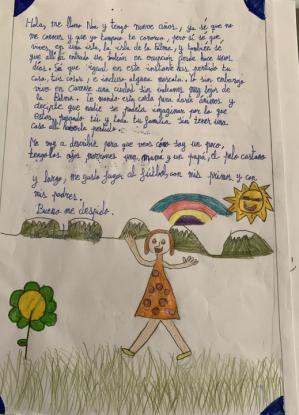 Hola, me llamo Noa y tengo nueve años, ya sé que no
me conoces y que yo tampoco te conozco, pero sí sé que
vives en una isla, la isla de la Palma, y también sé
que allí ha entrado un volcán en erupción desde hace unos
días. Sé que igual en este instante has perdido tu
casa, tus cosas, e incluso alguna mascota. Yo sin embargo
vivo en una ciudad sin volcanes muy lejos de
la Palma. Te mando esta carta para darte ánimos y
decirte que nadie se puede imaginar por lo que
estás pasando tú y toda tu familia sin tener una
casa allí
Me voy a describir para que veas cómo soy un poco,
tengo los ojos marrones una mamá y un papá, el pelo castaño
y largo, me gusta jugar al fútbol, con mis primos y con
mis padres.
Bueno me despido.